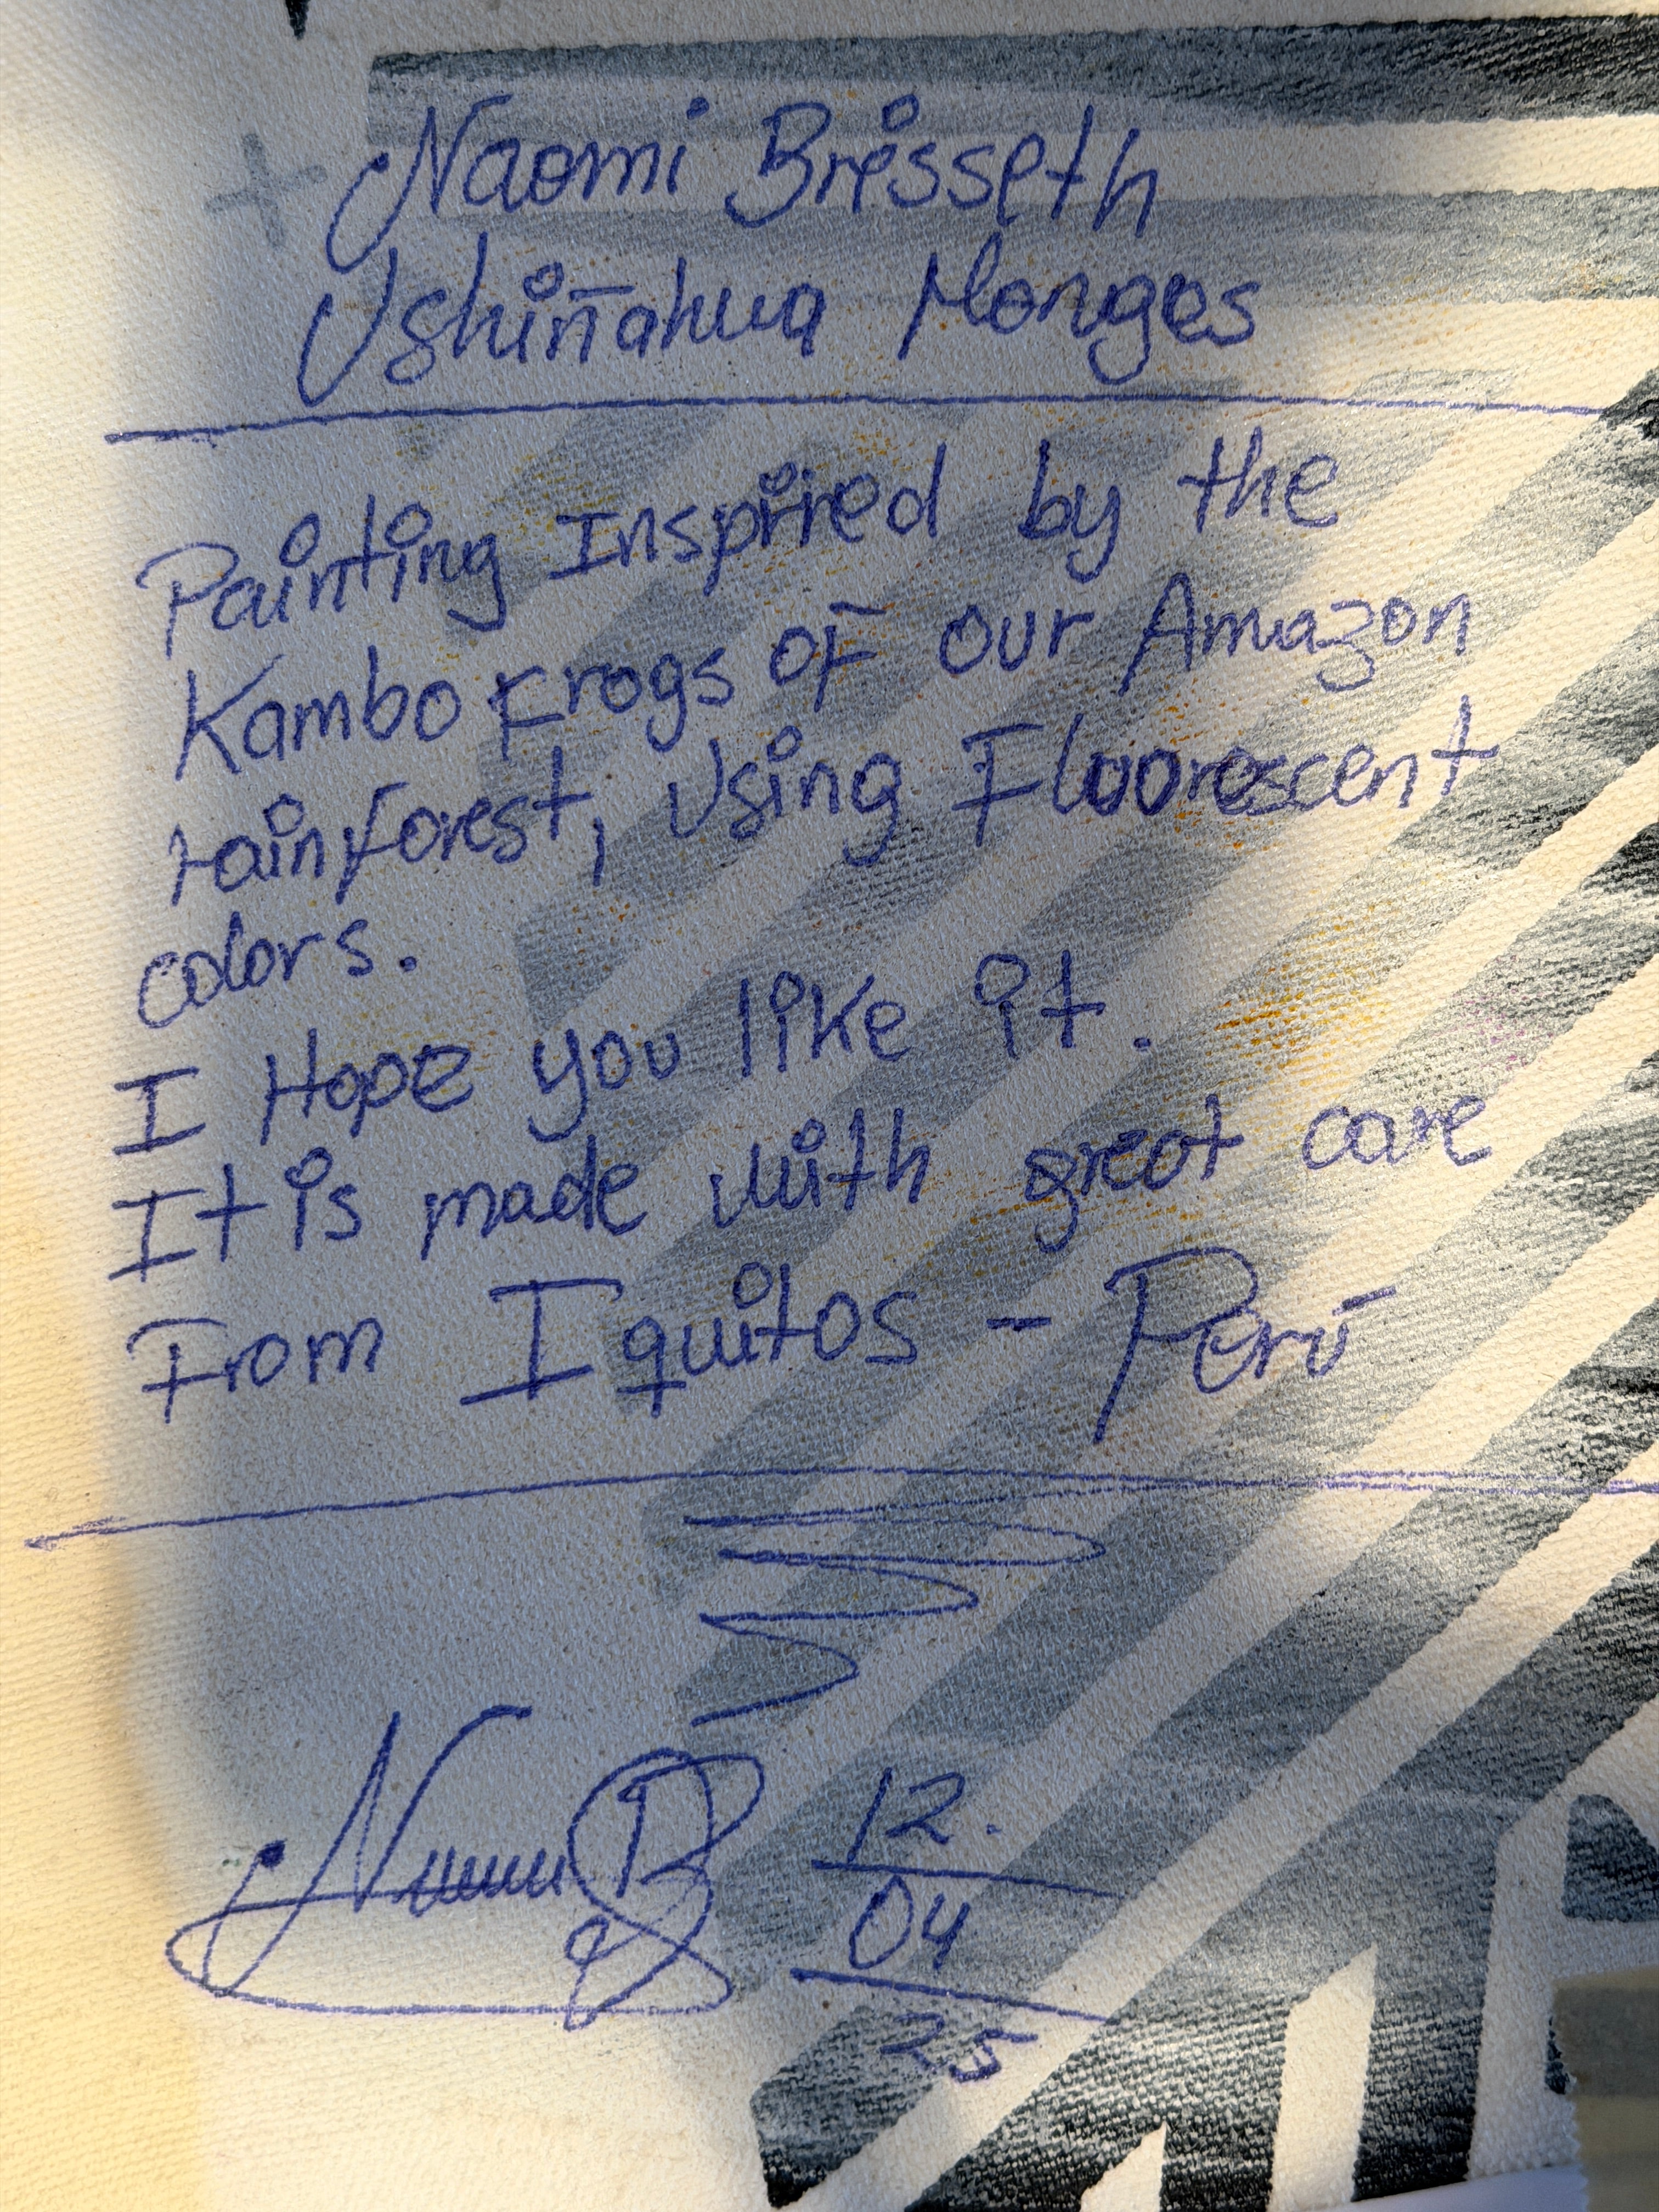 Naomi Brisseth
Ushiñahua Monges
Painting Inspired by the
Kambo Frogs of our Amazon
rainforest, Using Fluorescent
colors.
I Hope you like it.
It is made with great care
From Iquitos - Perú
12.
04
25